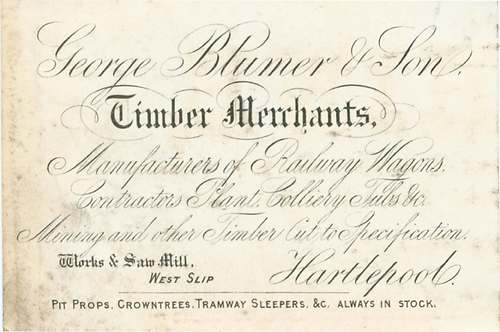 George Blumer & Son.
Timber Merchants.
Manufacturers of Railway Wagons.
Contractors Plant, Colliery Tubs &c.
Mining and other Timber Cut to Specification.
Works & Saw Mill,
West Slip
Hartlepool.
Pit Props, Crowntrees, Tramway Sleepers, &c. always in stock.